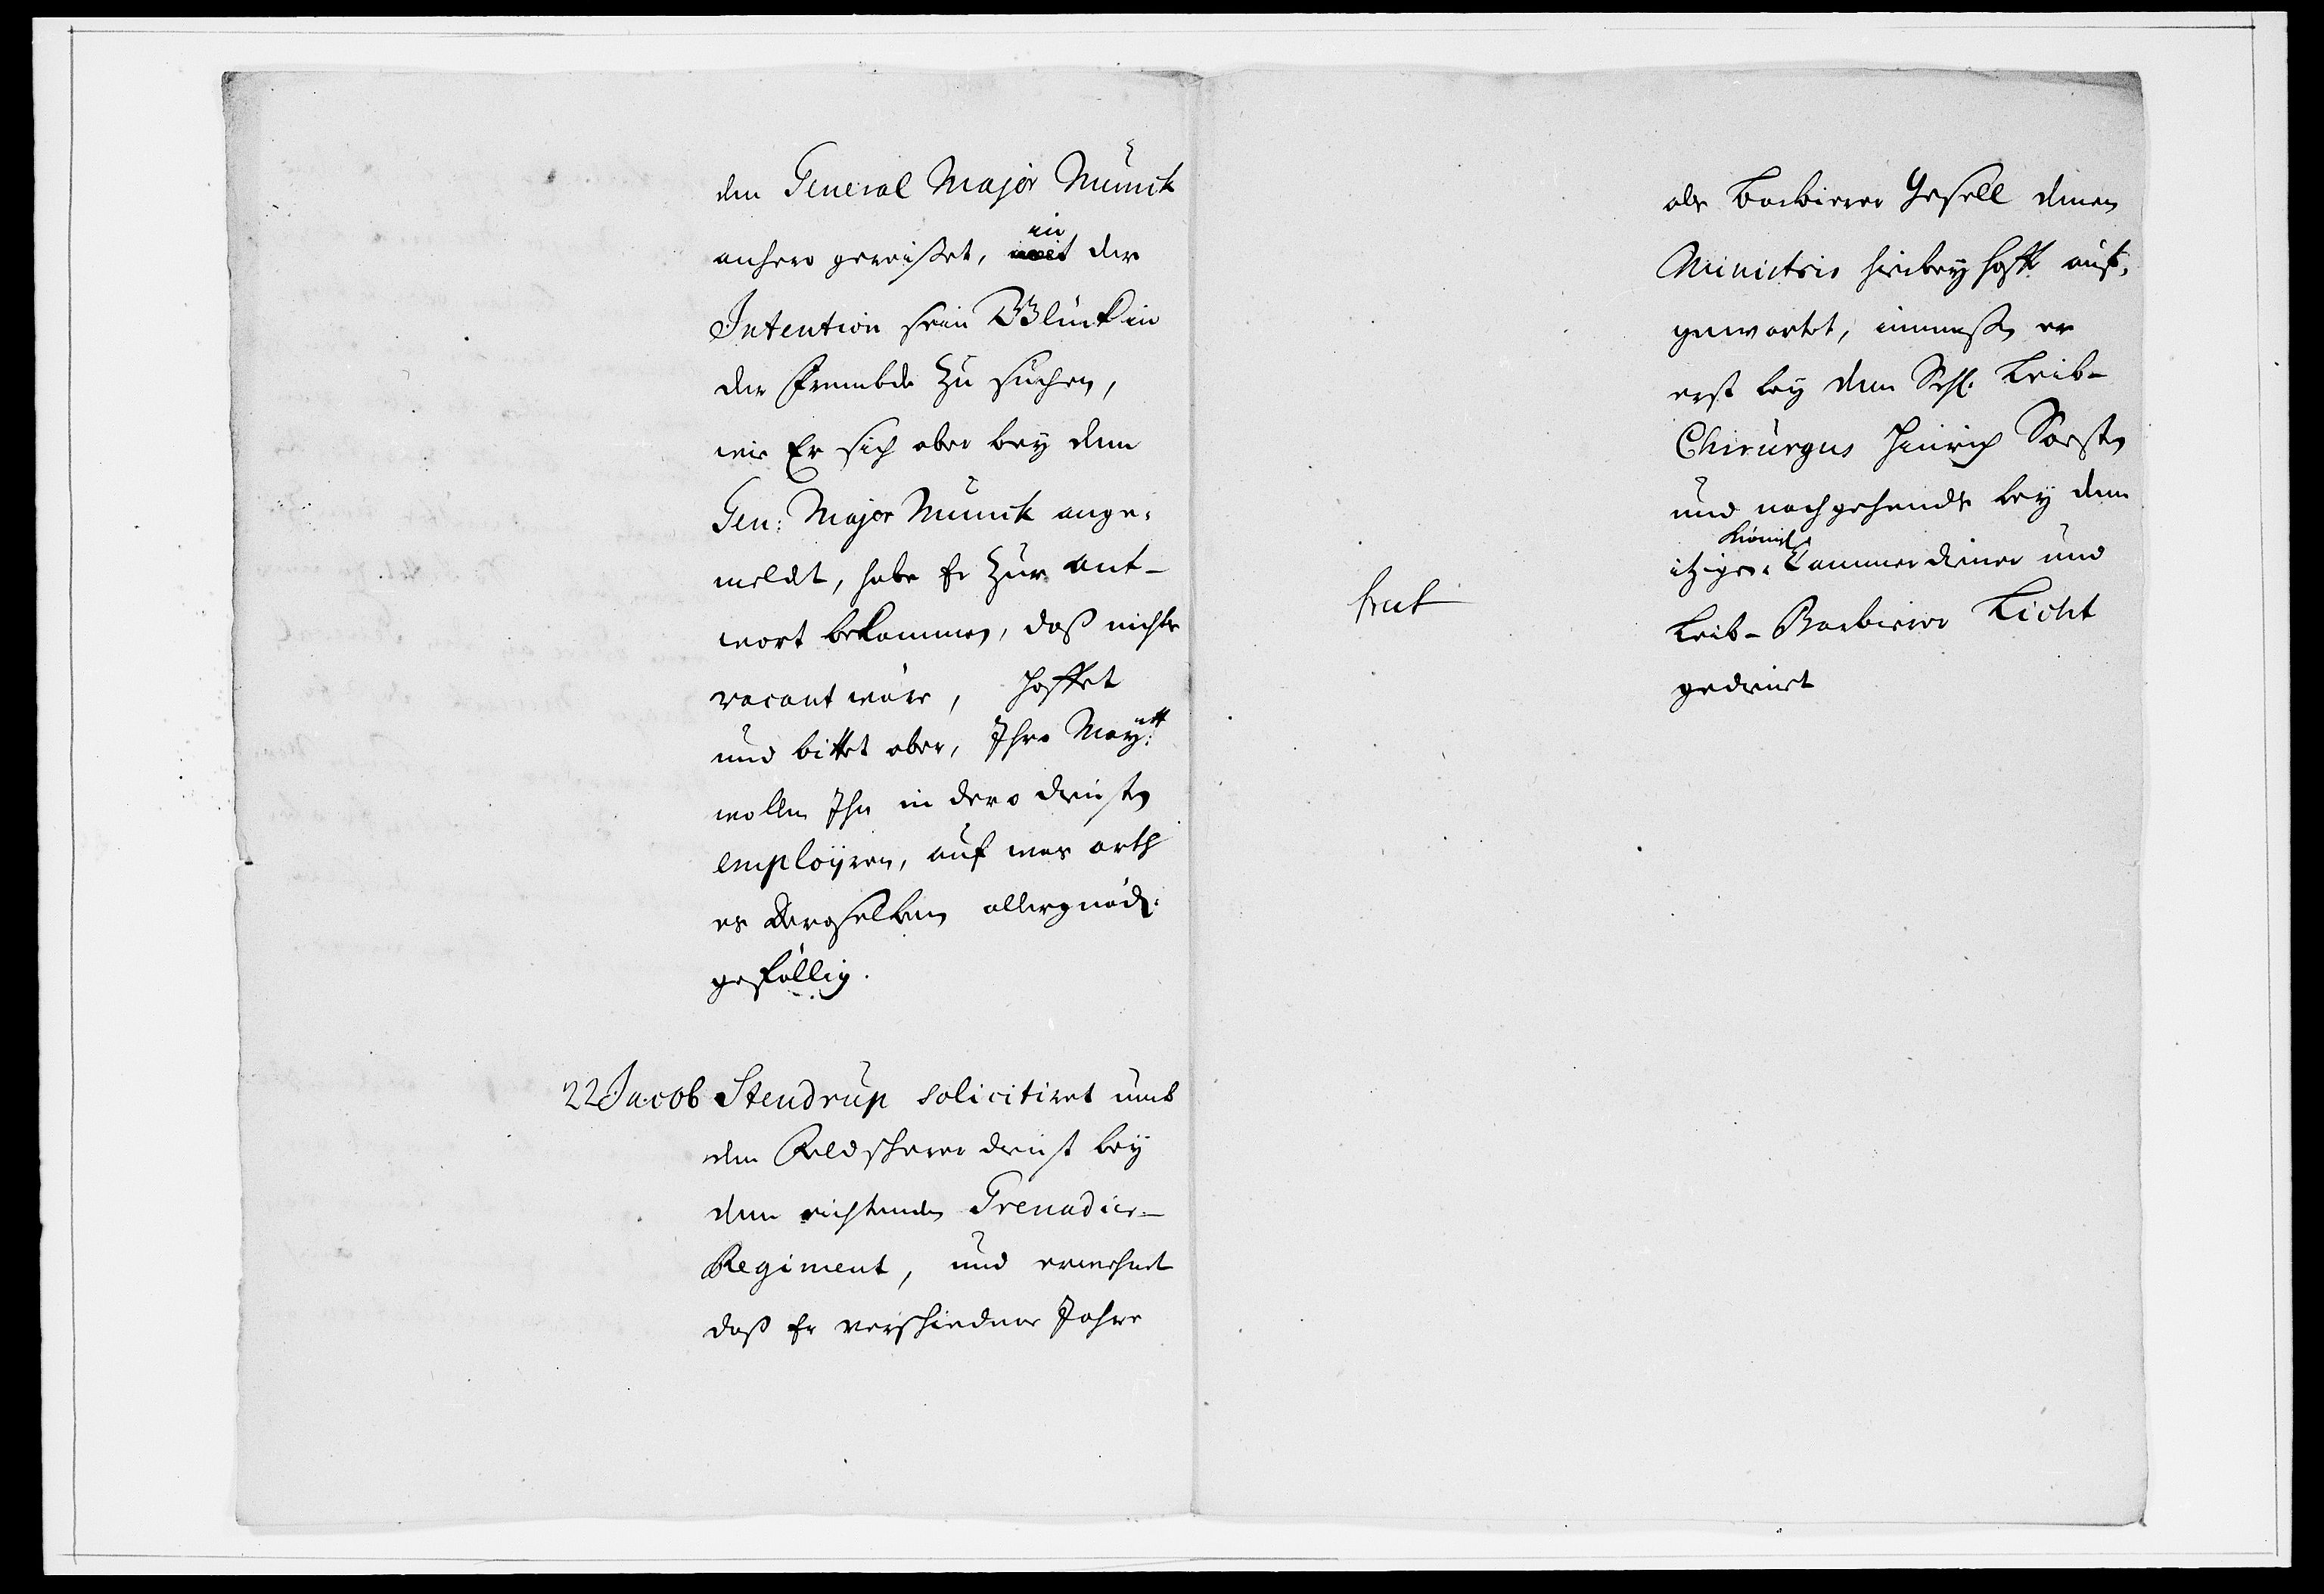 den General Major Münick
anhero gereißet, in der
Intention sein Glück in
der Frembde zu suchen,
wie Er sich aber bey dem
Gen: Major Münick ange-
meldt, habe Er zur ant-
wort bekommen, daß nichts
vacant wäre, hoffet
und bittet aber, Ihro Mayᵗᵗ
wollen Ihn in dero diensten
employren, auf was arth
es Deroselben allergnäd:
gefällig.
22 Jacob Stendrup solicitiret umb
den Feldscherer dienst bey
dem Grenadier-
Regiment, und erwehnet
daß Er verschiedene Jahre
als Barbierer Gesell denen
Ministris hiebey Hoffe auff-
gewartet, immaßen er
erst bey dem Sehl. Leib-
Chirurgus Hinrich
und nachgehends bey dem
Königl
itzigen Cammerdiener und
Leib-Barbierer Licht
gedienet